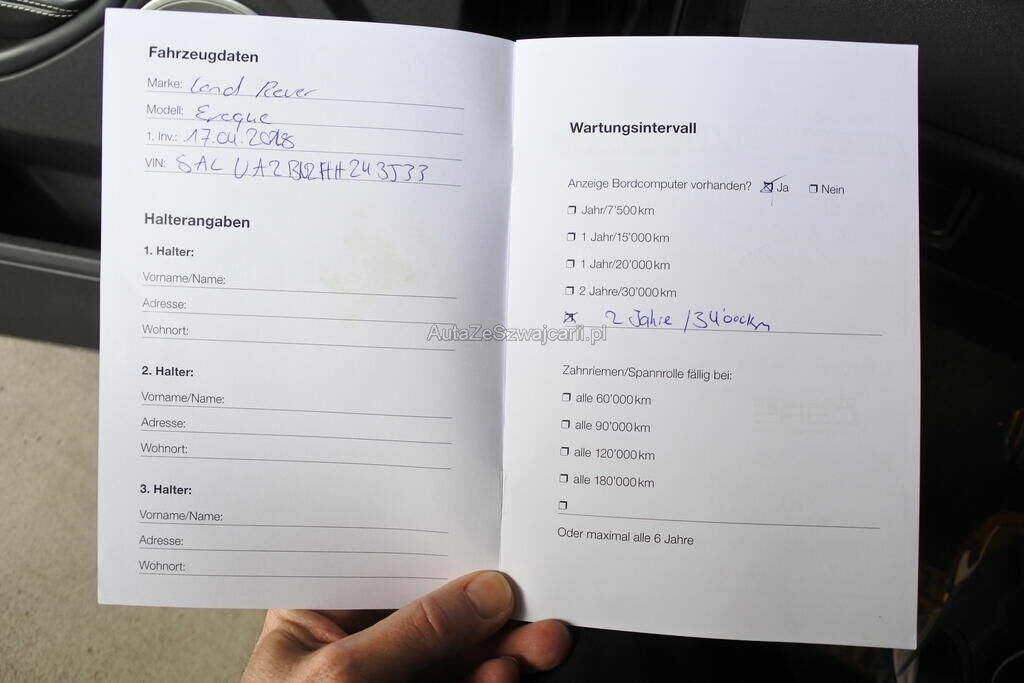 Fahrzeugdaten
Marke: Land Rover
Modell: Evoque
1. Inv.: 17.04.2018
VIN: SAL
Halterangaben
1. Halter:
Vorname/Name:
Adresse:
Wohnort:
2. Halter:
Vorname/Name:
Adresse:
Wohnort:
3. Halter:
Vorname/Name:
Adresse:
Wohnort:
Wartungsintervall
Anzeige Bordcomputer vorhanden? Ja Nein
Jahr/7'500 km
1 Jahr/15'000 km
1 Jahr/20'000 km
2 Jahre/30'000 km
2 Jahre / 34'000km
AutaZeSzwajcarii.pl
Zahnriemen/Spannrolle fällig bei:
alle 60'000 km
alle 90'000 km
alle 120'000 km
alle 180'000 km
Oder maximal alle 6 Jahre